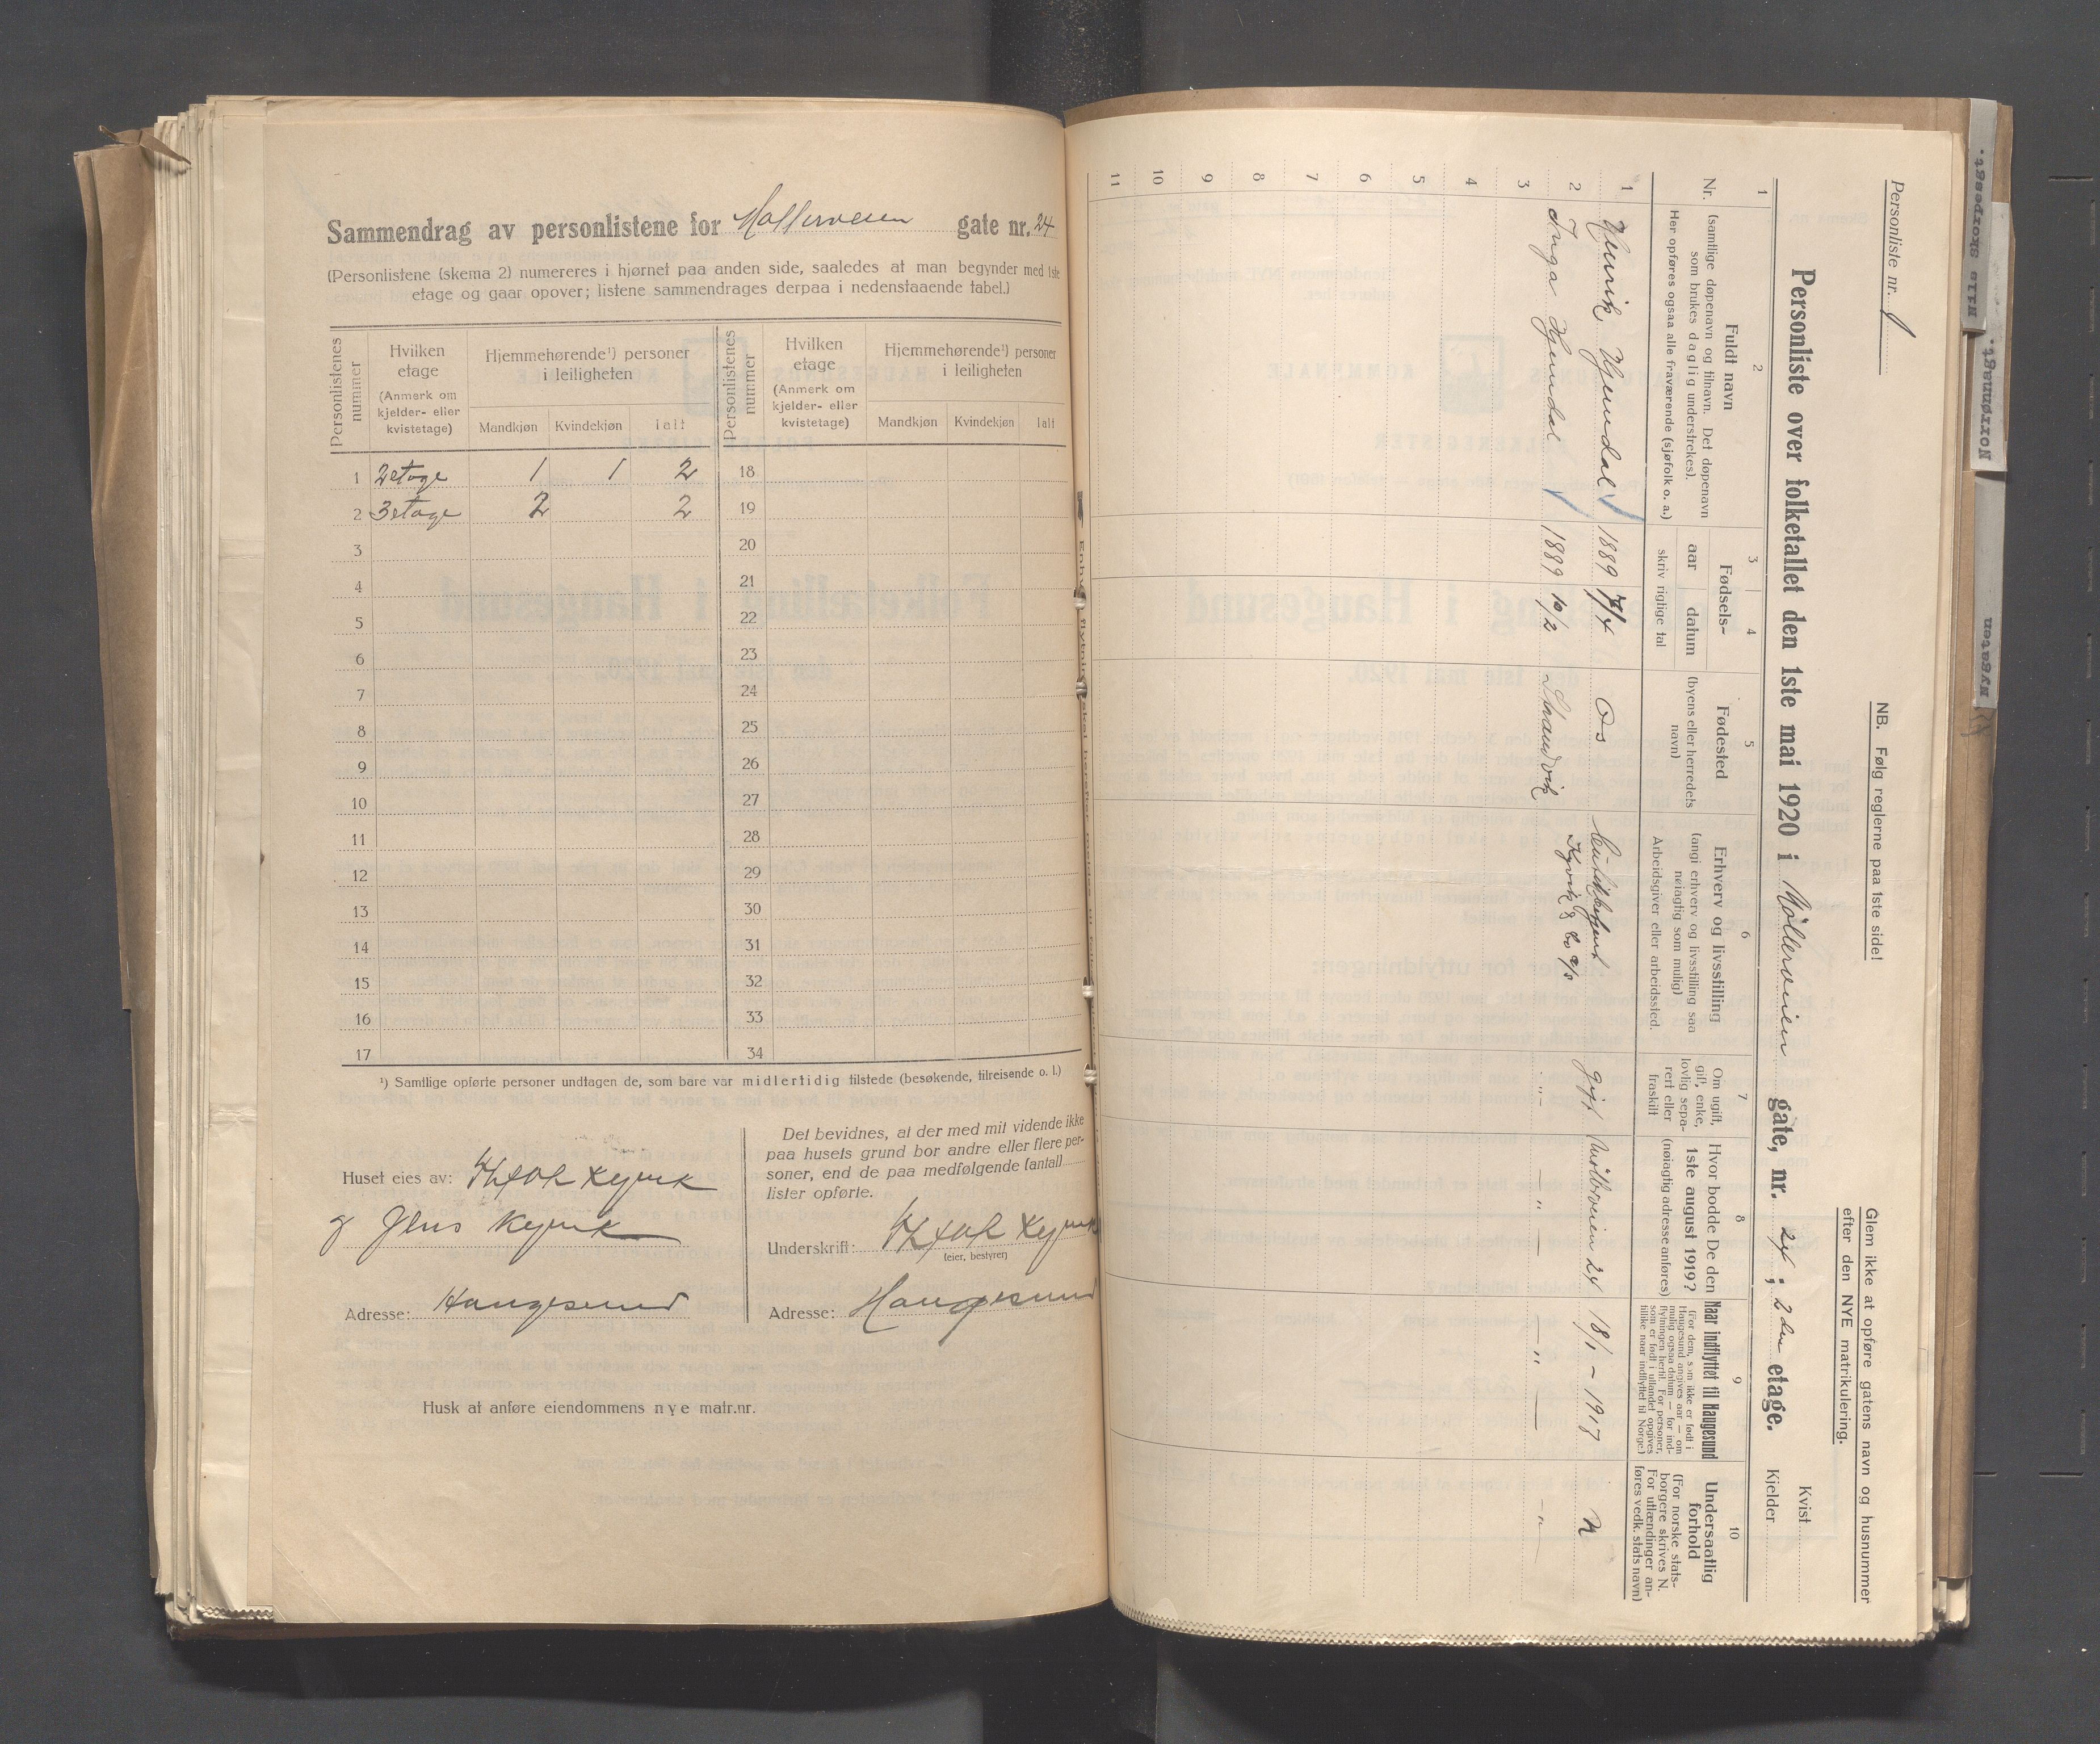 Sammendrag av personlistene for Mølleveien gate nr. 24
(Personlistene (skema 2) numereres i hjørnet paa anden side, saaledes at man begynder med 1ste
etage og gaar opover; listene sammendrages derpaa i nedenstaaende tabel.)
Personlistenes nummer
Hvilken etage (Anmerk om kjelder- eller kvistetage)
Hjemmehørende¹) personer i leiligheten
Mandkjøn Kvindekjøn Ialt
Personlistenes nummer
Hvilken etage (Anmerk om kjelder- eller kvistetage)
Hjemmehørende¹) personer i leiligheten
Mandkjøn Kvindekjøn Ialt
1 2 etage 1 1 2 18
2 3 etage 2 2 19
3 20
4 21
5 22
6 23
7 24
8 25
9 26
10 27
11 28
12 29
13 30
14 31
15 32
16 33
17 34
¹) Samtlige opførte personer undtagen de, som bare var midlertidig tilstede (besøkende, tilreisende o. l.)
Huset eies av:
g Jens Kyvik
Adresse: Haugesund
Det bevidnes, at der med mit vidende ikke
paa husets grund bor andre eller flere per-
soner, end de paa medfølgende (antall
lister opførte.
Underskrift: Kyvik
(eier, bestyrer)
Adresse: Haugesund
Husk at anføre eiendommens nye matr.nr.
Personliste nr. 1
NB. Følg reglerne paa 1ste side!
Glem ikke at opføre gatens navn og husnummer
efter den NYE matrikulering.
Personliste over folketallet den 1ste mai 1920 i Mølleveien gate, nr. 24 ; 2den etage.
Kvist
Kjelder
1 2 3 4 5 6 7 8 9 10
Nr.
Fuldt navn
(samtlige døpenavn og tilnavn. Det døpenavn
som brukes daglig understrekes).
Her opføres ogsaa alle fraværende (sjøfolk o. a.)
Fødsels-
aar datum
skriv rigtige tal
Fødested
(byens eller herredets
navn)
Erhverv og livsstilling
(angi erhverv og livsstilling saa
nøiagtig som mulig)
Arbeidsgiver eller arbeidssted.
Om ugift,
gift, enke,
lovlig sepa-
rert eller
fraskilt
Hvor bodde De den
1ste august 1919?
(nøiagtig adresse anføres)
Naar indflyttet til Haugesund
(For dem, som ikke er født i
Haugesund angives aar — om
mulig ogsaa datum — for ind-
flytningen hertil. For personer,
som er født i utlandet opgives
tillike naar indflyttet til Norge.)
Undersaatlig
forhold
(For norske stats-
borgere skrives N.
For utlændinger an-
føres vedk. stats navn)
1 Henrik Hjemdal 1889 7/4 Os gift Mölleveien 24 18/1 - 1917 N
2 Inga Hjemdal 1889 10/2 Strandvik Kyvik & Co a/s - " - - " - - " - - " -
3
4
5
6
7
8
9
10
11
Mlle Skorpesgt.
Norrønagt.
Nygaten